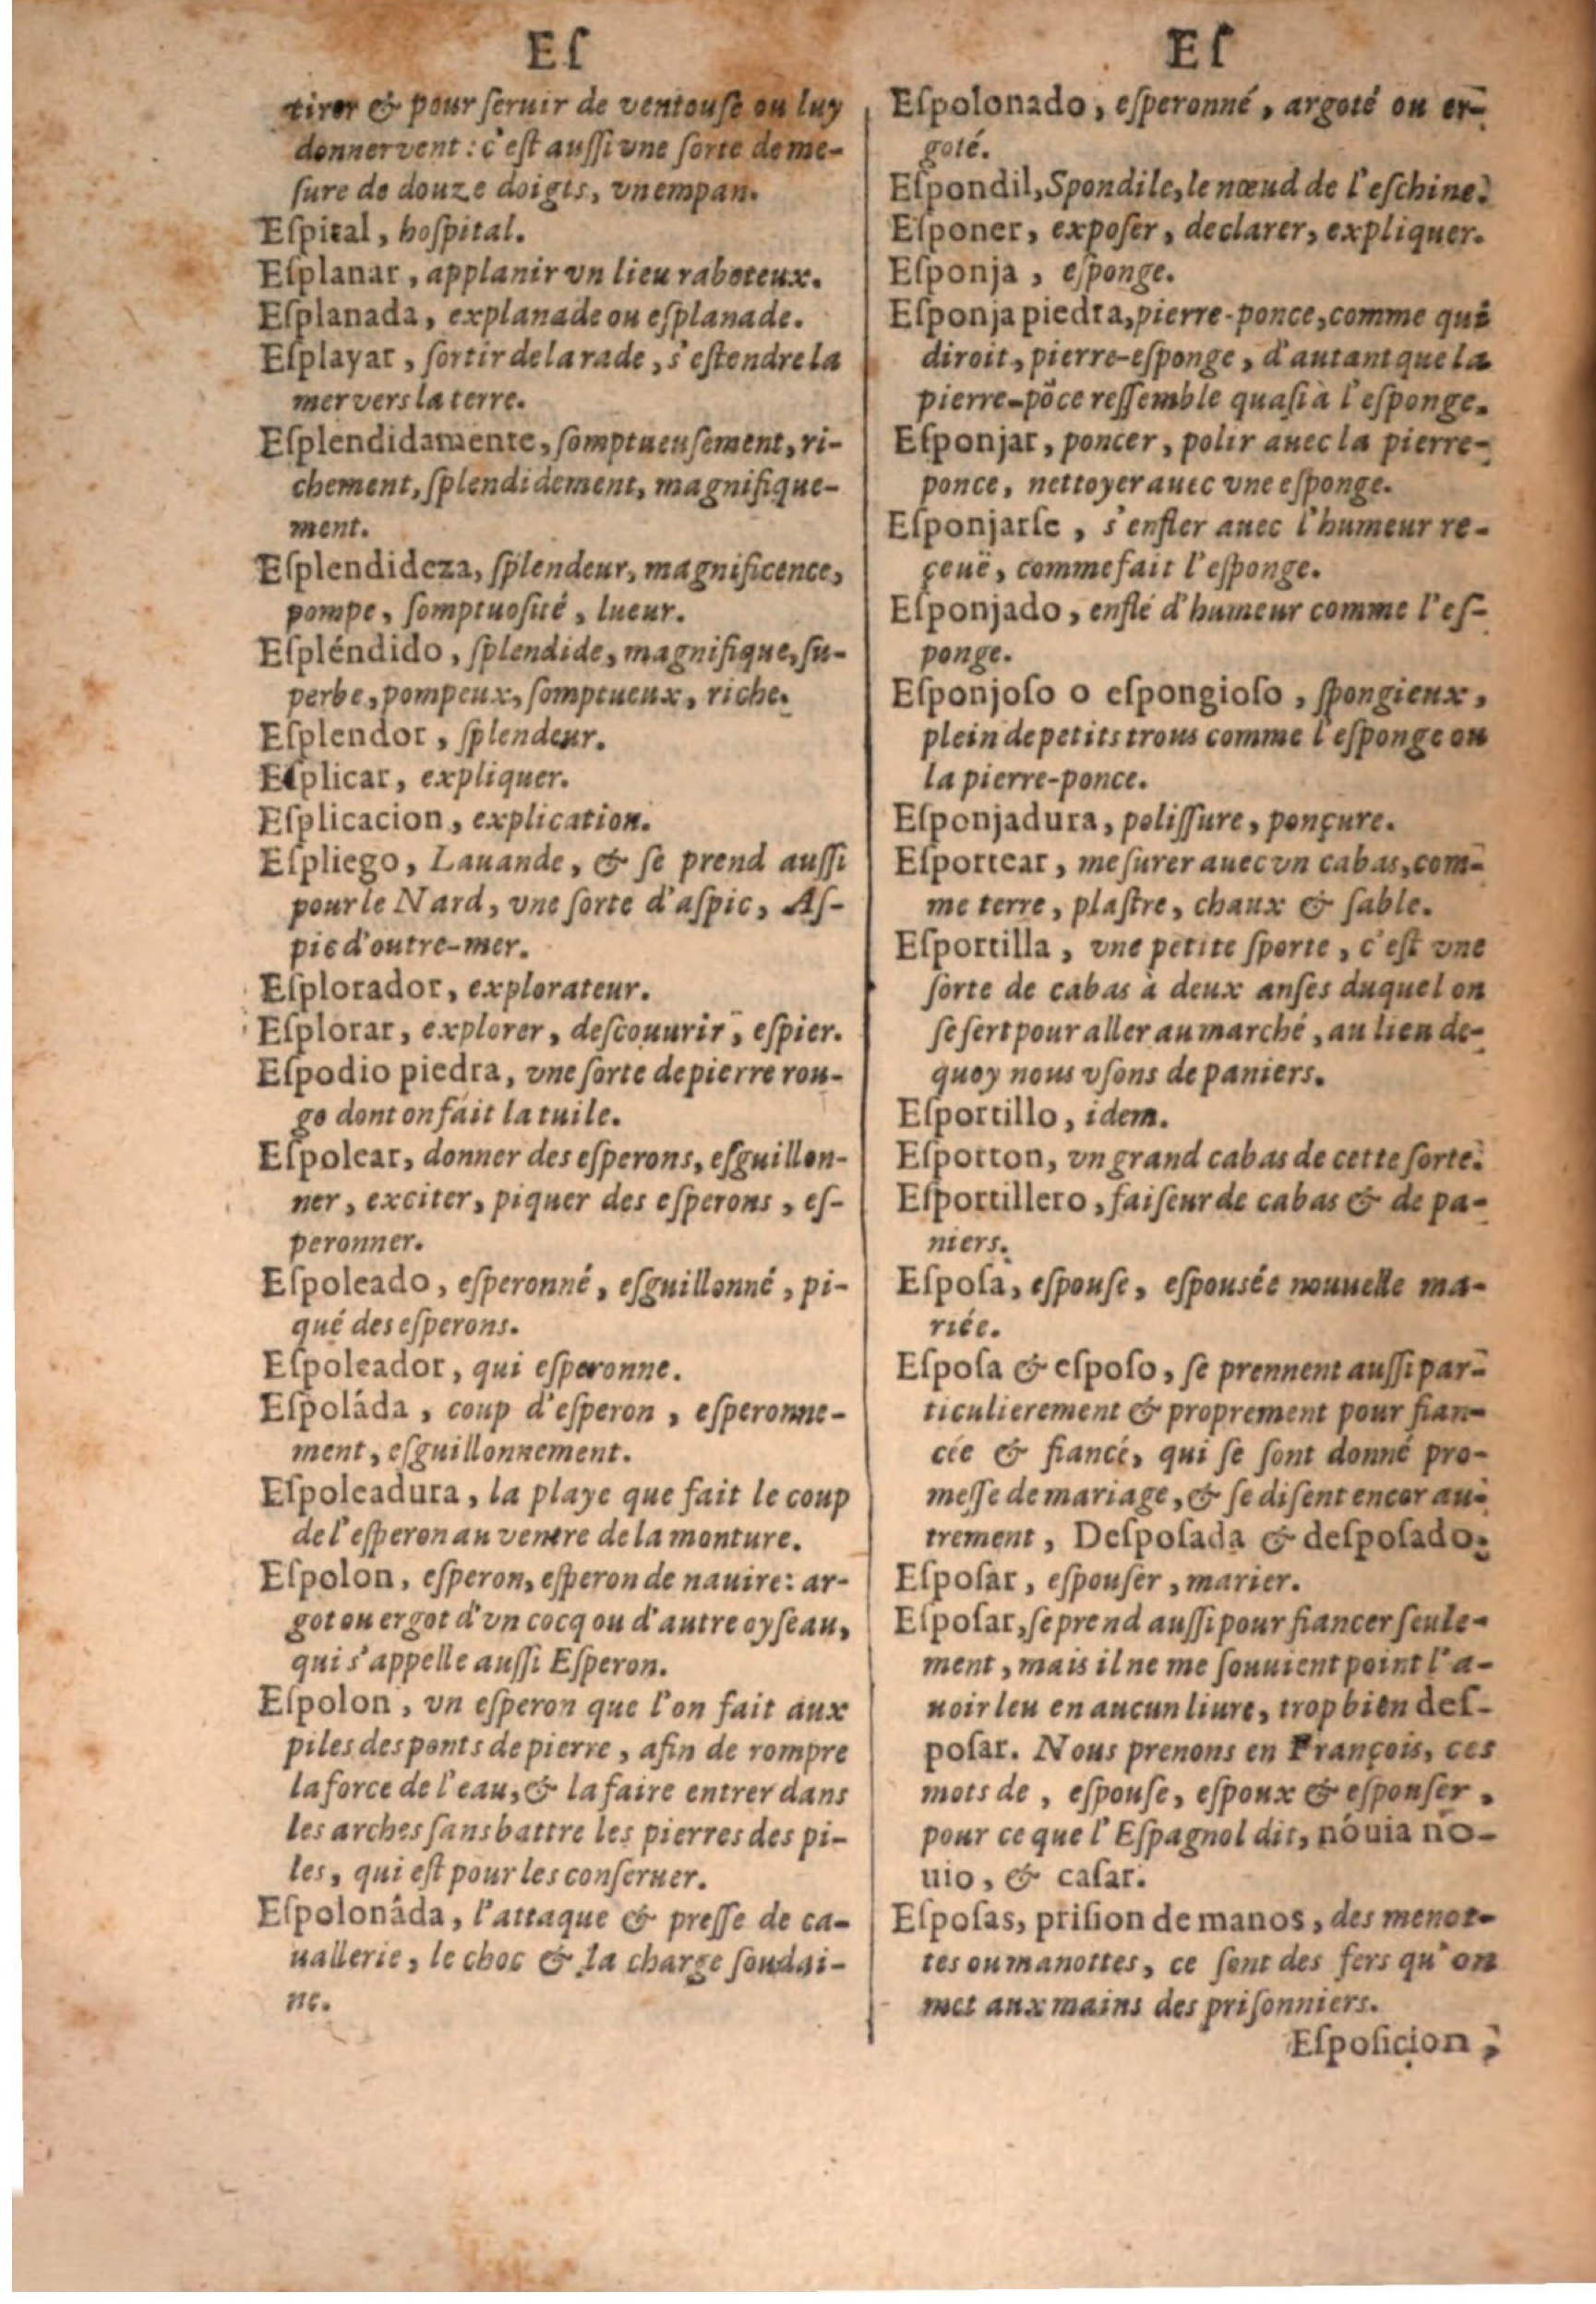 Eſ
tirer & pour ſeruir de ventouſe ou luy
donner vent : c'eſt auſſi vne ſorte de me-
ſure de douze doigts, vn empan.
Eſpital, hoſpital.
Eſplanar, applanir vn lieu raboteux.
Eſplanada, explanade ou eſplanade.
Eſplayar, ſortir de la rade, s'eſtendre la
mer vers la terre.
Eſplendidamente, ſomptueuſement, ri-
chement, ſplendidement, magnifique-
ment.
Eſplendideza, ſplendeur, magnificence,
pompe, ſomptuoſité, lueur.
Eſpléndido, ſplendide, magnifique, ſu-
perbe, pompeux, ſomptueux, riche.
Eſplendor, ſplendeur.
Eſplicar, expliquer.
Eſplicacion, explication.
Eſpliego, Lauande, & ſe prend auſſi
pour le Nard, vne ſorte d'aſpic, Aſ-
pic d'outre-mer.
Eſplorador, explorateur.
Eſplorar, explorer, deſcouurir, eſpier.
Eſpodio piedra, vne ſorte de pierre rou-
ge dont on fait la tuile.
Eſpolear, donner des eſperons, eſguillon-
ner, exciter, piquer des eſperons, eſ-
peronner.
Eſpoleado, eſperonné, eſguillonné, pi-
qué des eſperons.
Eſpoleador, qui eſperonne.
Eſpoláda, coup d'eſperon, eſperonne-
ment, eſguillonnement.
Eſpoleadura, la playe que fait le coup
de l'eſperon au ventre de la monture.
Eſpolon, eſperon, eſperon de nauire : ar-
got ou ergot d'vn cocq ou d'autre oyſeau,
qui s'appelle auſſi Eſperon.
Eſpolon, vn eſperon que l'on fait aux
piles des ponts de pierre, afin de rompre
la force de l'eau, & la faire entrer dans
les arches ſans battre les pierres des pi-
les, qui eſt pour les conſeruer.
Eſpolonáda, l'attaque & preſſe de ca-
uallerie, le choc & la charge ſoudai-
ne.
Eſ
Eſpolonado, eſperonné, argoté ou er-
goté.
Eſpondil, Spondile, le nœud de l'eſchine.
Eſponer, expoſer, declarer, expliquer.
Eſponja, eſponge.
Eſponja piedra, pierre-ponce, comme qui
diroit, pierre-eſponge, d'autant que la
pierre-põce reſſemble quaſi à l'eſponge.
Eſponjar, poncer, polir auec la pierre-
ponce, nettoyer auec vne eſponge.
Eſponjarſe, s'enfler auec l'humeur re-
çeuë, comme fait l'eſponge.
Eſponjado, enflé d'humeur comme l'eſ-
ponge.
Eſponjoſo o eſpongioſo, ſpongieux,
plein de petits trous comme l'eſponge ou
la pierre-ponce.
Eſponjadura, poliſſure, ponçure.
Eſportear, meſurer auec vn cabas, com-
me terre, plaſtre, chaux & ſable.
Eſportilla, vne petite ſporte, c'eſt vne
ſorte de cabas à deux anſes duquel on
ſe ſert pour aller au marché, au lieu de-
quoy nous vſons de paniers.
Eſportillo, idem.
Eſporton, vn grand cabas de cette ſorte.
Eſportillero, faiſeur de cabas & de pa-
niers.
Eſpoſa, eſpouſe, eſpouſée nouuelle ma-
riée.
Eſpoſa & eſpoſo, ſe prennent auſſi par-
ticulierement & proprement pour fian-
cée & fiancé, qui ſe ſont donné pro-
meſſe de mariage, & ſe diſent encor au-
trement, Deſpoſada & deſpoſado.
Eſpoſar, eſpouſer, marier.
Eſpoſar, ſe prend auſſi pour fiancer ſeule-
ment, mais il ne me ſouuient point l'a-
uoir leu en aucun liure, trop bien deſ-
poſar. Nous prenons en François, ces
mots de, eſpouſe, eſpoux & eſpouſer,
pour ce que l'Eſpagnol dit, nóuia nó-
uio, & caſar.
Eſpoſas, priſion de manos, des menot-
tes ou manottes, ce ſont des fers qu'on
met aux mains des priſonniers.
Eſpoſicion,